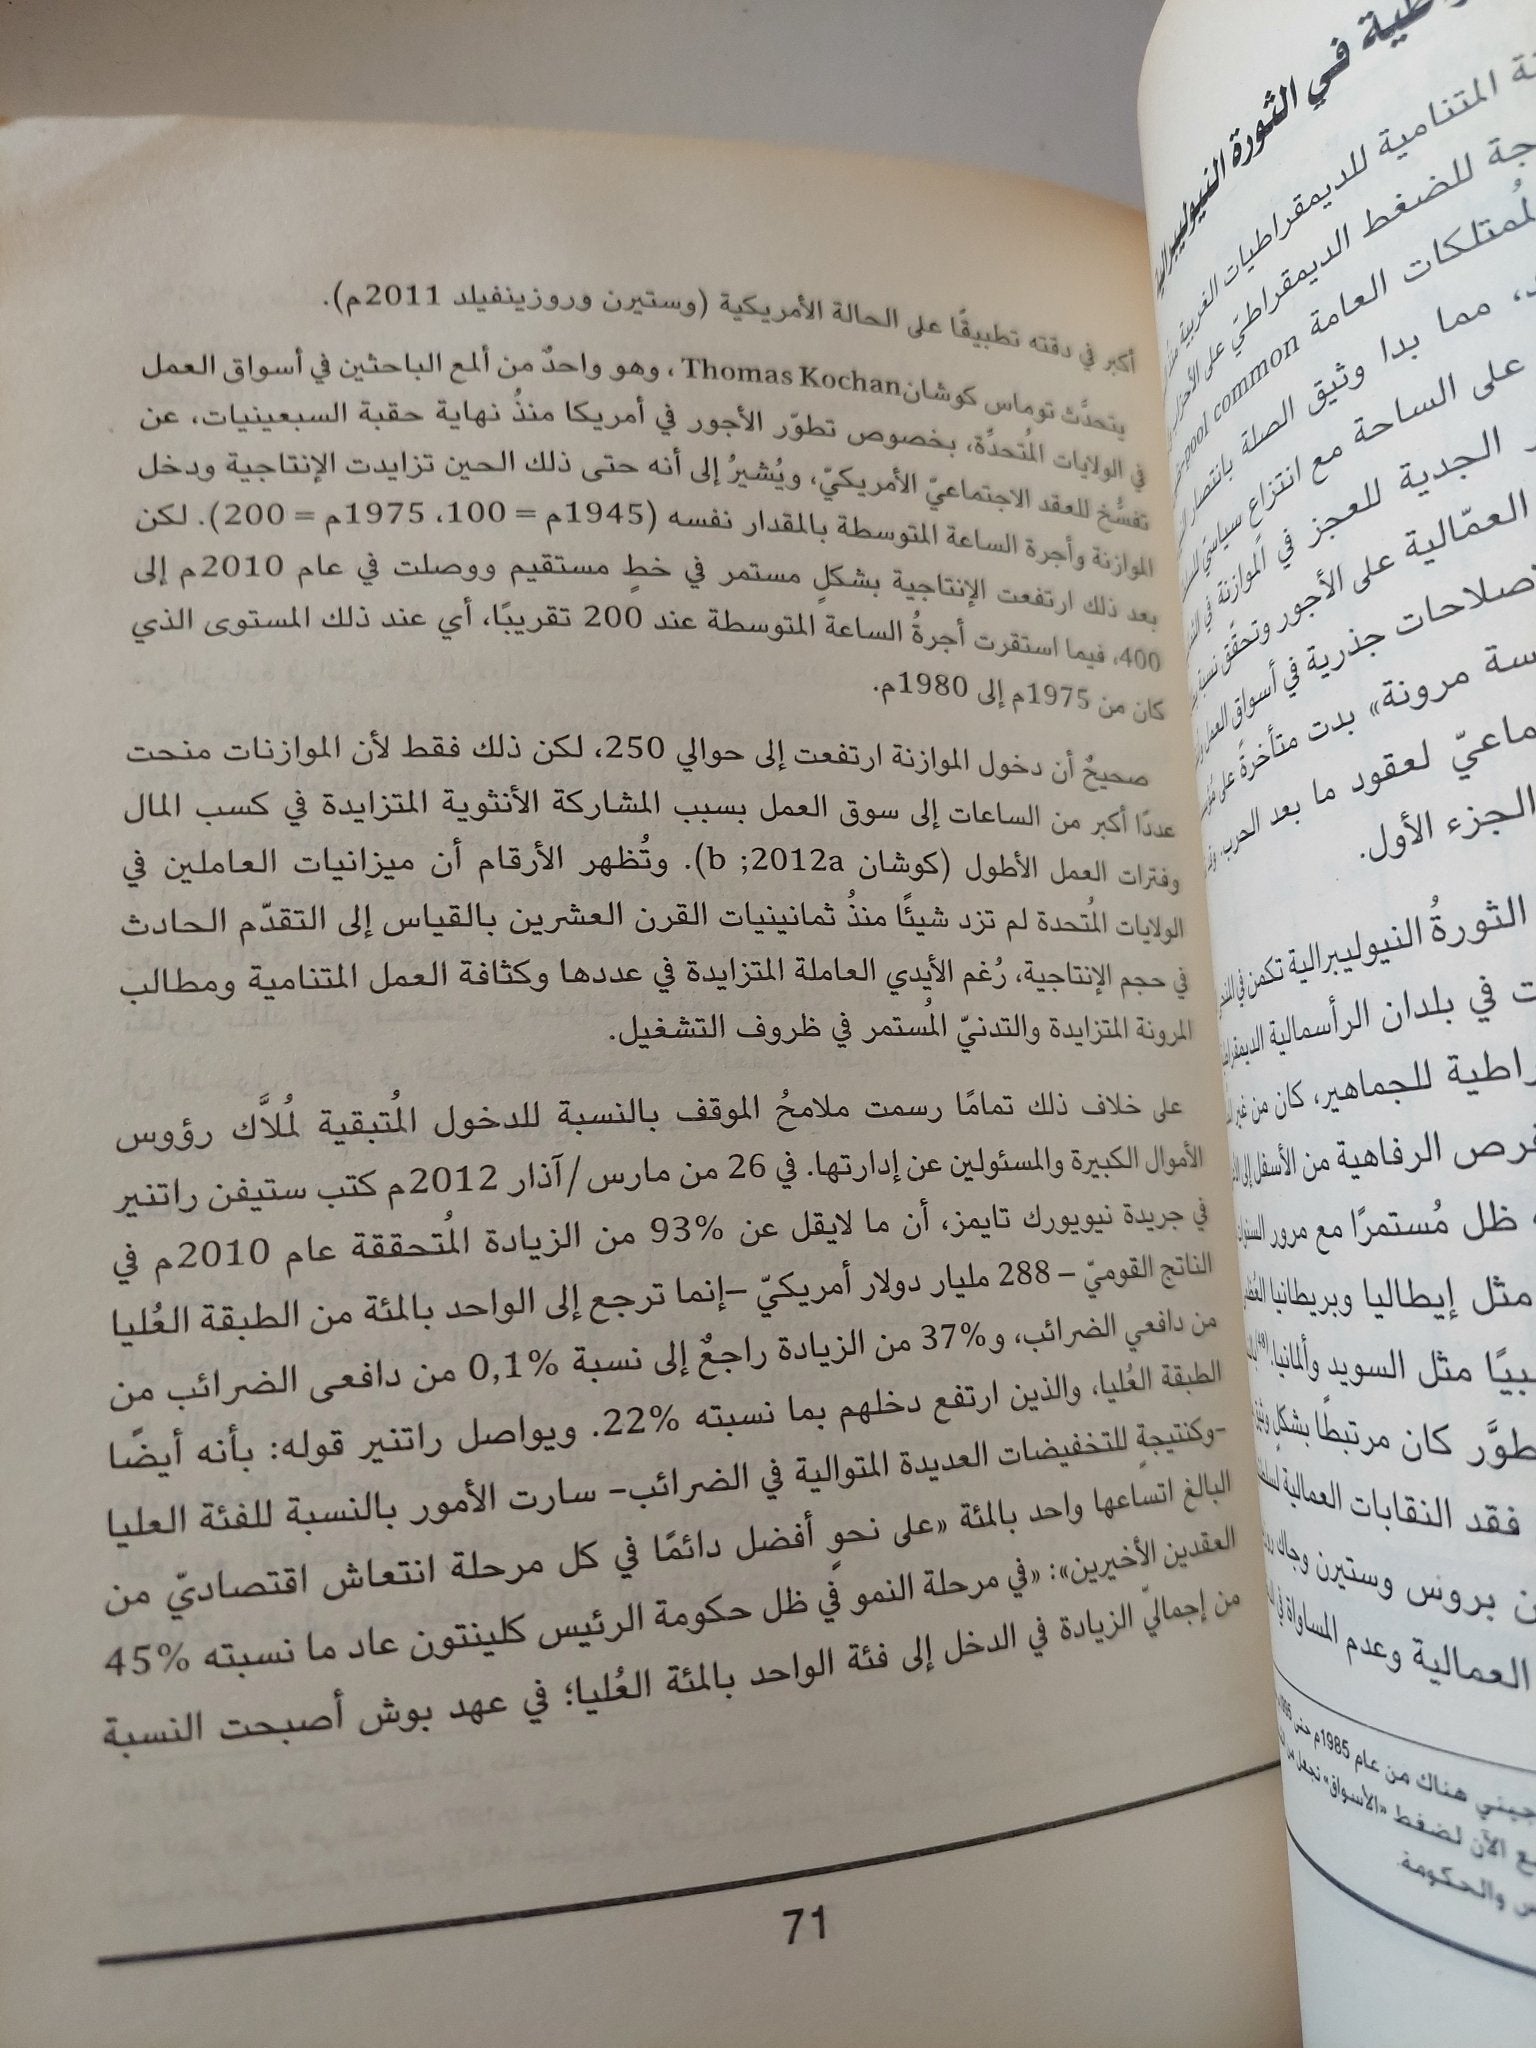 أكبر في دقته تطبيقًا على الحالة الأمريكية (وستيرن وروزينفيلد 2011م).
يتحدَّث توماس كوشانThomas Kochan ، وهو واحدٌ من ألمع الباحثين في أسواق العمل
في الولايات المُتحدَّة، بخصوص تطوّر الأجور في أمريكا منذُ نهاية حقبة السبعينيات، عن
تفسُّخ للعقد الاجتماعيّ الأمريكيّ، ويُشيرُ إلى أنه حتى ذلك الحين تزايدت الإنتاجية ودخل
الموازنة وأجرة الساعة المتوسطة بالمقدار نفسه (1945م = 100، 1975م = 200). لكن
بعد ذلك ارتفعت الإنتاجية بشكلٍ مستمر في خطٍ مستقيم ووصلت في عام 2010م إلى
400، فيما استقرت أجرةُ الساعة المتوسطة عند 200 تقريبًا، أي عند ذلك المستوى الذي
كان من 1975م إلى 1980م.
صحيحٌ أن دخول الموازنة ارتفعت إلى حوالي 250، لكن ذلك فقط لأن الموازنات منحت
عددًا أكبر من الساعات إلى سوق العمل بسبب المشاركة الأنثوية المتزايدة في كسب المال
وفترات العمل الأطول (كوشان 2012a; b). وتُظهر الأرقام أن ميزانيات العاملين في
الولايات المُتحدة لم تزد شيئًا منذُ ثمانينيات القرن العشرين بالقياس إلى التقدّم الحادث
في حجم الإنتاجية، رُغم الأيدي العاملة المتزايدة في عددها وكثافة العمل المتنامية ومطالب
المرونة المتزايدة والتدنيّ المُستمر في ظروف التشغيل.
على خلاف ذلك تمامًا رسمت ملامحُ الموقف بالنسبة للدخول المُتبقية لمُلاَّك رؤوس
الأموال الكبيرة والمسئولين عن إدارتها. في 26 من مارس/آذار 2012م كتب ستيفن راتنير
في جريدة نيويورك تايمز، أن ما لايقل عن 93% من الزيادة المُتحققة عام 2010م في
الناتج القوميّ – 288 مليار دولار أمريكيّ –إنما ترجع إلى الواحد بالمئة من الطبقة العُليا
من دافعي الضرائب، و37% من الزيادة راجعٌ إلى نسبة 0,1% من دافعى الضرائب من
الطبقة العُليا، والذين ارتفع دخلهم بما نسبته 22%. ويواصل راتنير قوله: بأنه أيضًا
-وكنتيجةٍ للتخفيضات العديدة المتوالية في الضرائب– سارت الأمور بالنسبة للفئة العليا
البالغ اتساعها واحد بالمئة «على نحوٍ أفضل دائمًا في كل مرحلة انتعاش اقتصاديّ من
العقدين الأخيرين»: «في مرحلة النمو في ظل حكومة الرئيس كلينتون عاد ما نسبته 45%
من إجماليّ الزيادة في الدخل إلى فئة الواحد بالمئة العُليا؛ في عهد بوش أصبحت النسبة
71
في الثورة النيوليبرالية
المتنامية للديمقراطيات الغربية
للضغط الديمقراطيّ على
العامة common
مما بدا وثيق الصلة بانتصار
على الساحة مع انتزاع سياسيّ
الجدية للعجز في الموازنة
العمّالية على الأجور وتحقّق نسبة
جذرية في أسواق العمل
مرونة» بدت متأخرةً على
لعقود ما بعد الحرب،
الجزء الأول.
الثورةُ النيوليبرالية تكمن في
في بلدان الرأسمالية
للجماهير، كان من غير
الرفاهية من الأسفل إلى
ظل مُستمرًا مع مرور
مثل إيطاليا وبريطانيا
مثل السويد وألمانيا.
كان مرتبطًا بشكلٍ
فقد النقابات العمالية
بروس وستيرن وجاك
العمالية وعدم المساواة في
هناك من عام 1985م حتى
الآن لضغط «الأسواق» تجعل من
والحكومة.